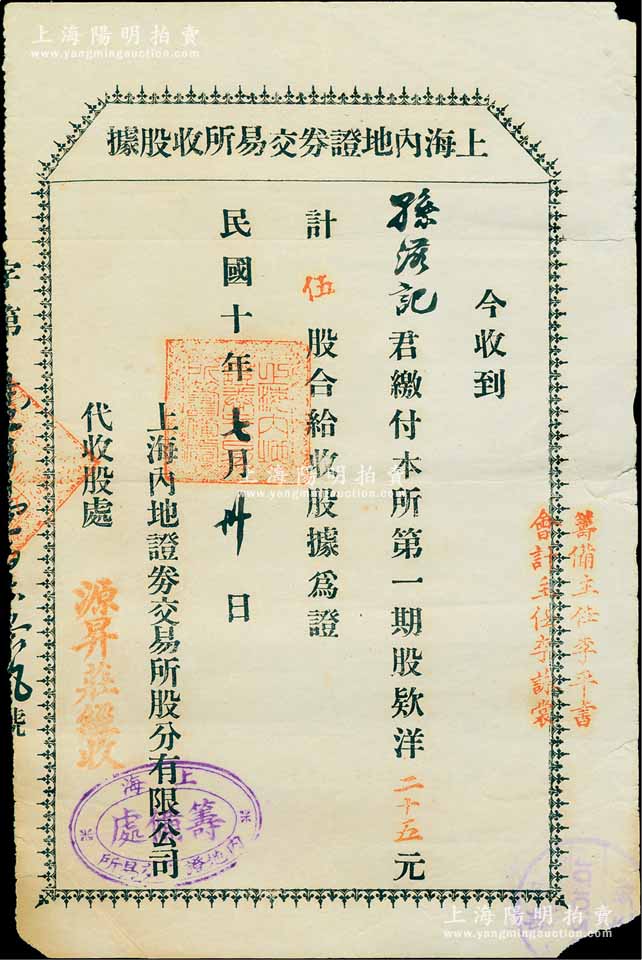 上海陽明拍賣
www.yangmingauction.com
上海內地證券交易所收股據
今收到
孫滋記君繳付本所第一期股欵洋二十五元
計伍股合給收股據爲證
民國十年七月卅日
上海內地證券交易所股分有限公司
代收股處
源昇莊經收
字第
號
籌備主任李平書
會計主任李詠裳
上海
籌備處
上海陽明拍賣
www.yangmingauction.com
上海陽明拍賣
www.yangmingauction.com